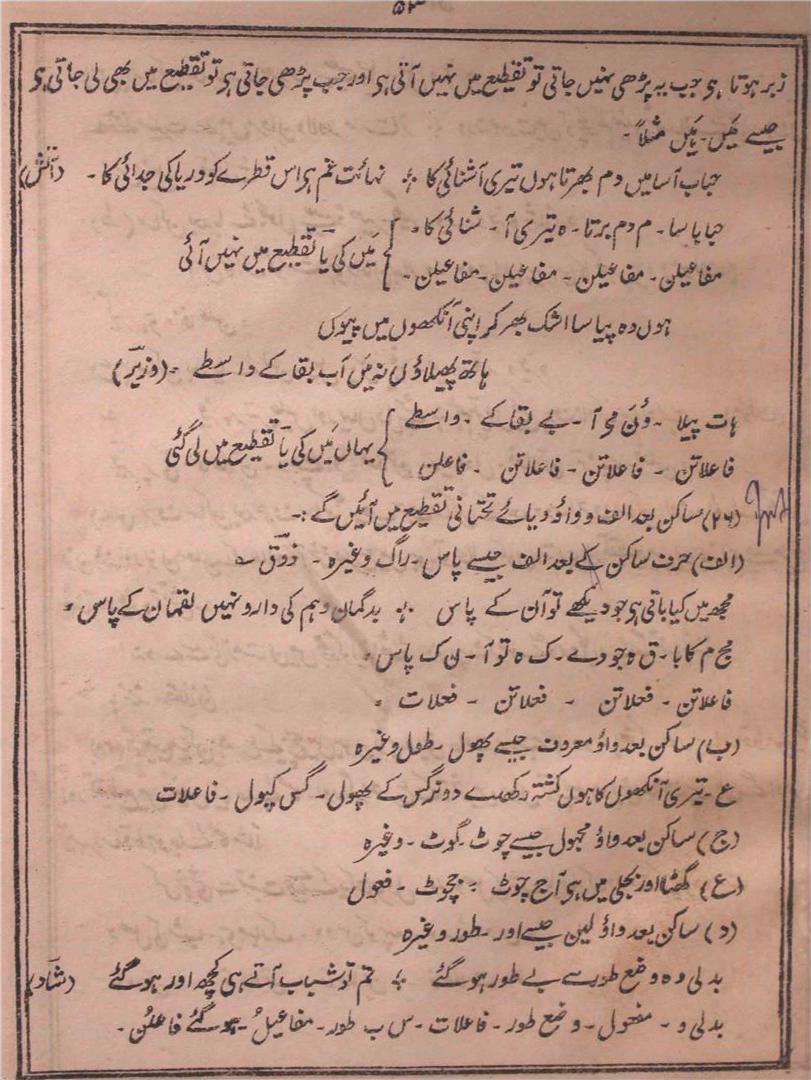 زبر ہوتا ہو جب یہ پڑھی نہیں جاتی تو تقطیع میں نہیں آتی ہو اور جب پڑھی جاتی ہو تو تقطیع میں بھی لی جاتی ہو
جیسے مَیں۔ ہَیں مثلاً۔
حباب آسا میں دم بھرتا ہوں تیری آشنائی کا ؛ نہائت غم ہو اس قطرے کو دریا کی جدائی کا۔ (آتش)
حبابا سا۔ م دم برتا۔ ہ تیری آ۔ شنائی کا۔
مفاعیلن۔ مفاعیلن۔ مفاعیلن۔ مفاعیلن۔
مَیں کی یا تقطیع میں نہیں آئی
ہوں وہ پیاسا اشک بھر کر اپنی آنکھوں میں پیوں
ہاتھ پھیلاؤں نہ مَیں آب بقا کے واسطے۔ (وزیر)
ہات پیلا۔ وُنَ مَے آ۔ بے بقا کے۔ واسطے
فاعلاتن۔ فاعلاتن۔ فاعلاتن۔ فاعلن
یہاں مَیں کی یا تقطیع میں لی گئی
(۲۶) ساکن بعد الف و واؤ و یائے تحتانی تقطیع میں آئیں گے:۔
(الف) حرف ساکن کے بعد الف جیسے پاس۔ راگ وغیرہ۔ ذوق ؎
مجھ میں کیا باقی ہو جو دیکھے تو آن کے پاس ؛ بدگمان وہم کی دارو نہیں لقمان کے پاس۔
مج م کا با۔ ق ہ جو دے۔ ک ہ تو آ۔ ن ک پاس۔
فاعلاتن۔ فعلاتن۔ فعلاتن۔ فعلات۔
(ب) ساکن بعد واؤ معروف جیسے پھول۔ طول وغیرہ
ع۔ تیری آنکھوں کا ہوں کشتہ رکھدے دو نرگس کے پھول۔ گس کپول۔ فاعلات
(ج) ساکن بعد واؤ مجہول جیسے چوٹ۔ گوٹ۔ وغیرہ
(ع) گھٹا اور بجلی میں ہو آج چوٹ ؛ جچوٹ۔ فعول
(د) ساکن بعد واؤ لین جیسے اور۔ طور وغیرہ
بدلی وہ وضع طور سے بے طور ہو گئے ؛ تم تو شباب آتے ہی کچھ اور ہو گئے (شاد)
بدلی و۔ مفعول۔ وضع طور۔ فاعلات۔ س ب طور۔ مفاعیلُ۔ ہو گئے فاعلُن۔